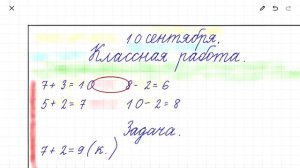 10 сентября.
Классная работа.
7 + 3 = 10 8 - 2 = 6
5 + 2 = 7 10 - 2 = 8
Задача.
7 + 2 = 9 (к.)